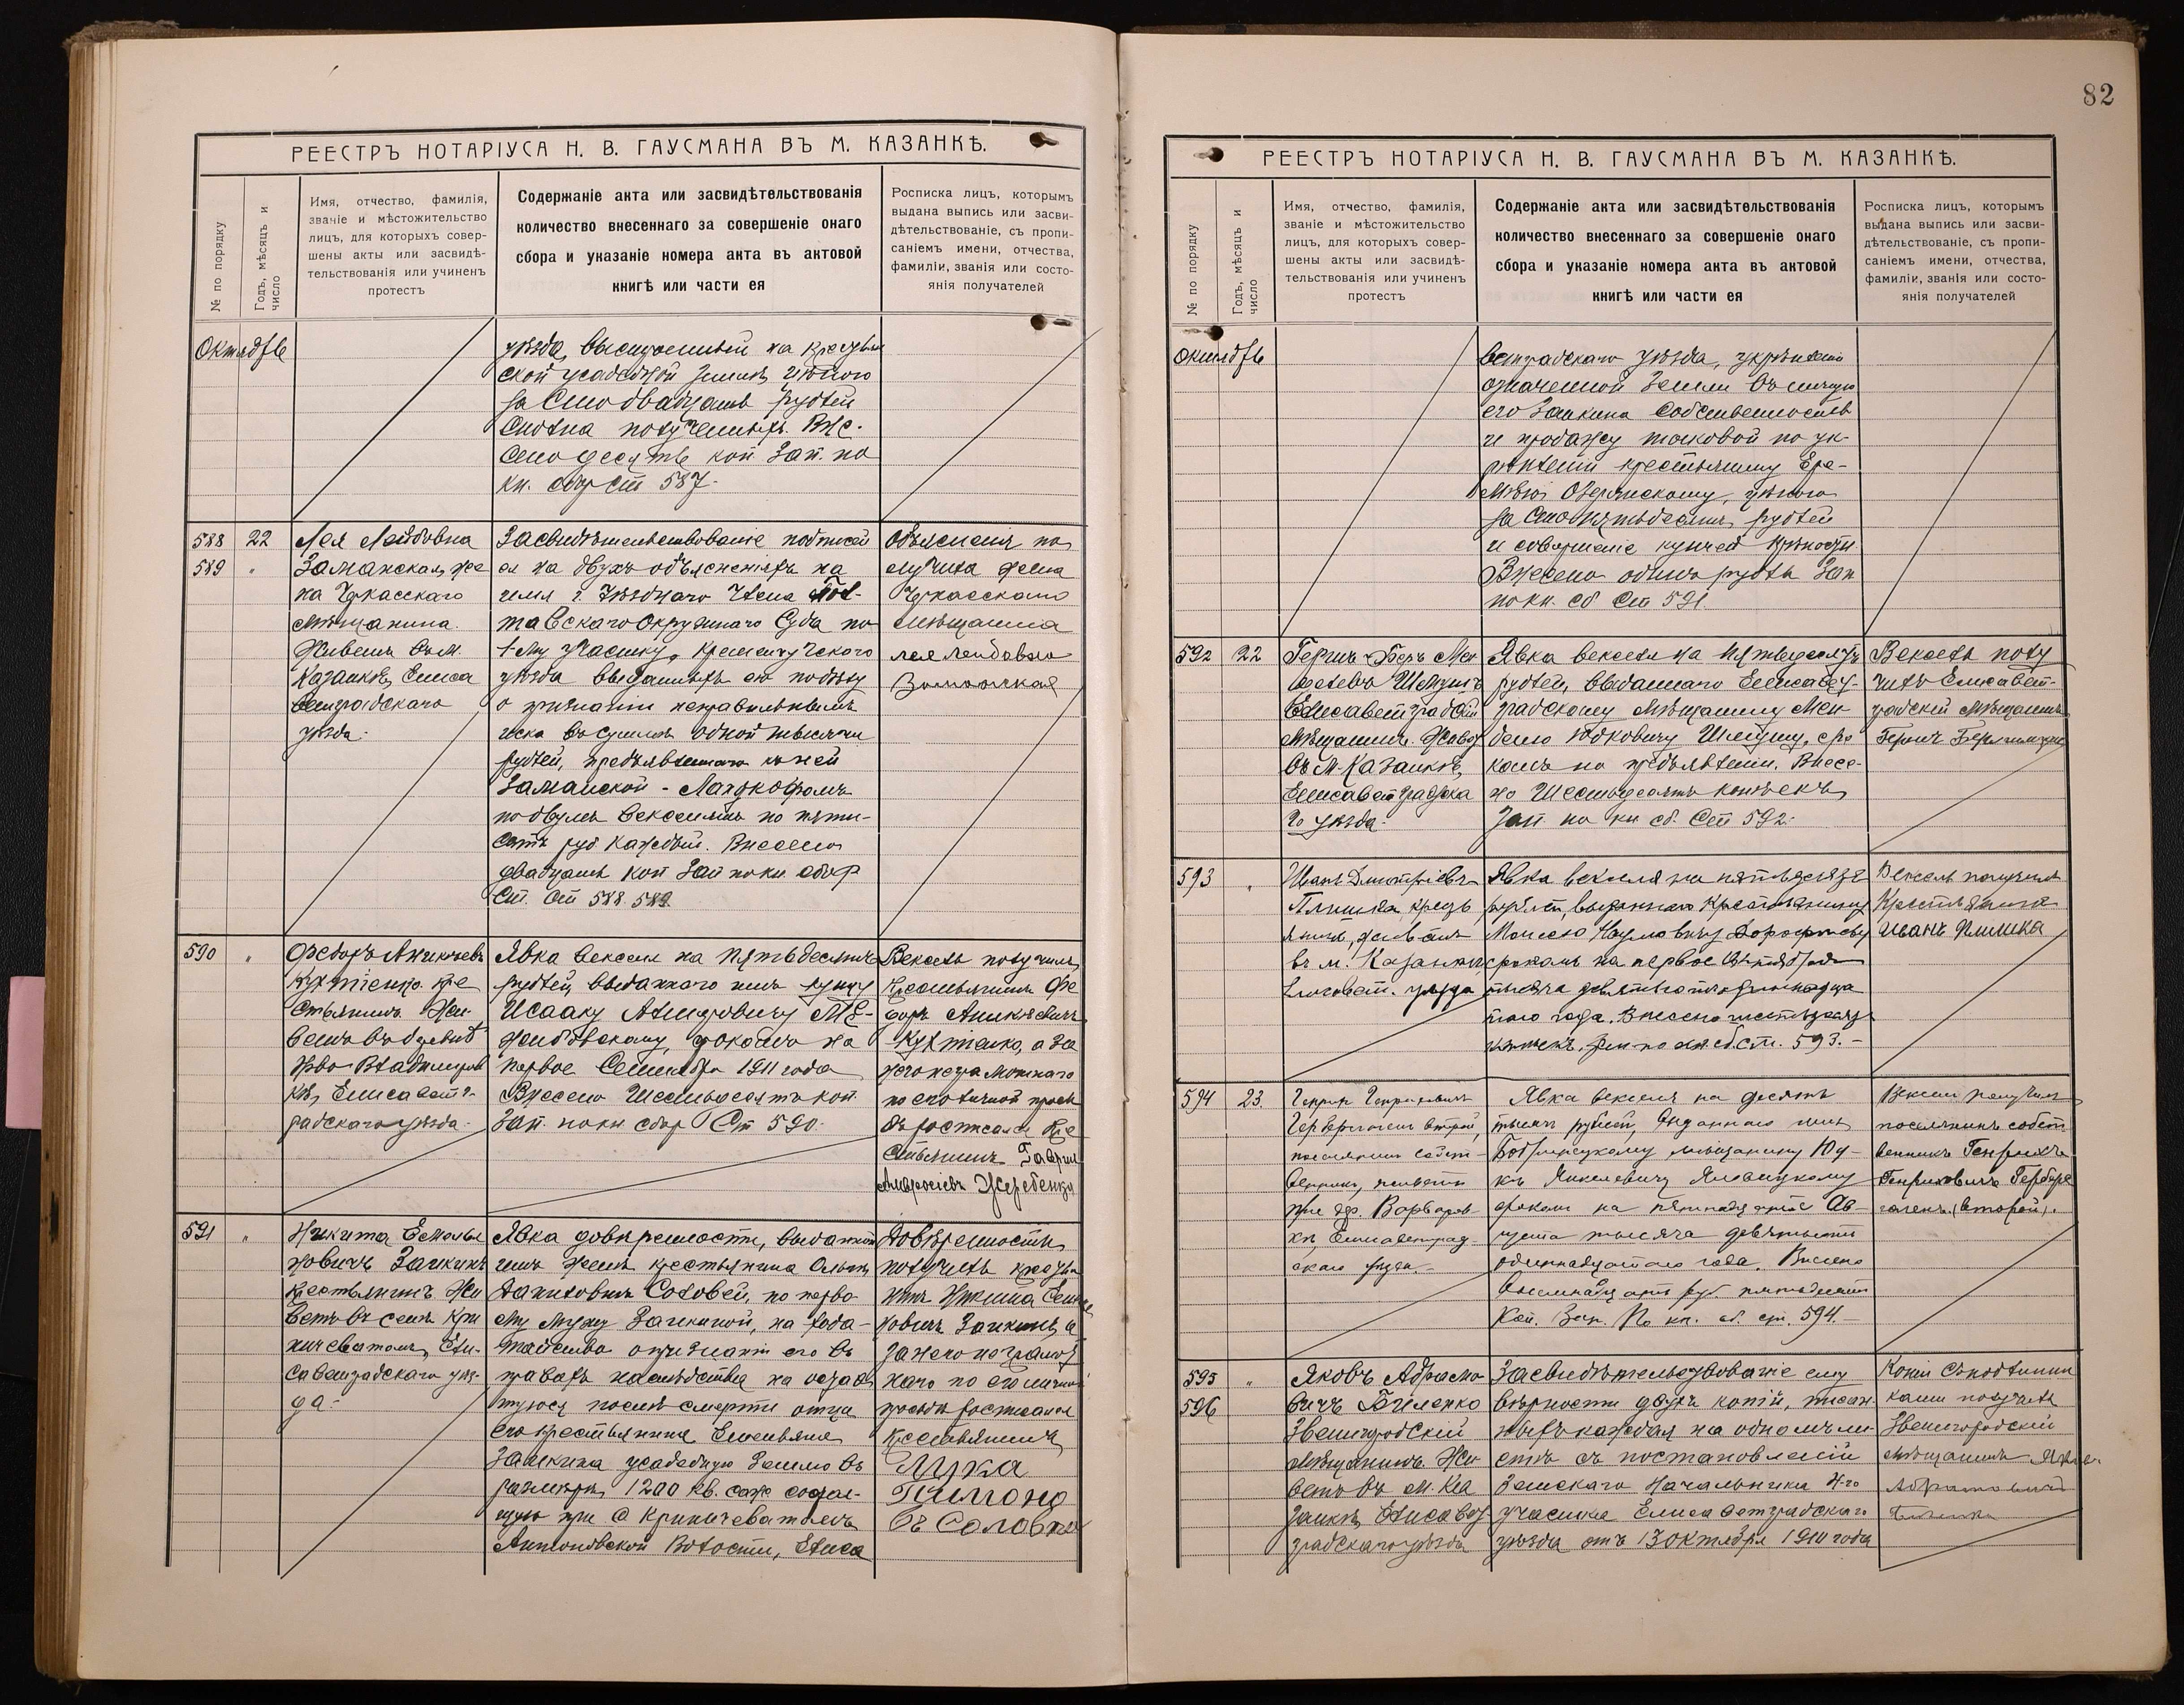 РЕЕСТРЪ НОТАРІУСА Н. В. ГАУСМАНА ВЪ М. КАЗАНКѢ.
№ по порядку
Годъ, мѣсяцъ и
число
Имя, отчество, фамилія,
званіе и мѣстожительство
лицъ, для которыхъ совер-
шены акты или засвидѣ-
тельствованія или учиненъ
протестъ
Содержаніе акта или засвидѣтельствованія
количество внесеннаго за совершеніе онаго
сбора и указаніе номера акта въ актовой
книгѣ или части ея
Росписка лицъ, которымъ
выдана выпись или засви-
дѣтельствованіе, съ пропи-
саніемъ имени, отчества,
фамиліи, званія или состо-
янія получателей
Октября
уѣзда, выстроенный на крестьян
ской усадебной землѣ, цѣною
за Сто двадцать рублей
Сполна полученныхъ. Вне-
сено десять коп. Зап. по
кн. сбор Ст 587.
588 22
589 "
Лея Лейбовна
Заманская, же
на Черкасскаго
мѣщанина.
Живетъ въ м.
Казанкѣ, Елиса
ветградскаго
уѣзда.
Засвидѣтельствованіе подписей
ея на двухъ объясненіяхъ на
имя г. Уѣзднаго Члена Пол-
тавскаго Окружнаго Суда по
1-му участку, Кременчугскаго
уѣзда выданныхъ ею по дѣлу
о признаніи неправильнымъ
иска въ суммѣ одной тысячи
рублей, предъявленнаго къ ней
Заманской - Лапукофомъ
по двумъ векселямъ по пяти-
сотъ руб каждый. Внесено
двадцать коп Зап по кн сбор
Ст. Ст 588. 589.
Объясненія по
лучила жена
Черкасскаго
мѣщанина
лея лейбовна
590 "
Федоръ Аникіевъ
Кухтіенко, кре
стьянинъ. Жи-
ветъ въ деревнѣ
Ново-Владимиров
кѣ, Елисаветг-
радскаго уѣзда.
Явка векселя на пятьдесятъ
рублей, выданнаго имъ купцу
Исааку
срокомъ на
первое Сентября 1911 года
Внесено Шестьдесятъ коп.
Зап. по кн сбор Ст 590.
Вексель получилъ
Крестьянинъ Фе
доръ Аникіевъ
Кухтіенко, а за
него неграмотнаго
по его личной прось
бѣ росписался Кре
стьянинъ Гавріилъ
Амвросіевъ Жеребенко
591 "
Никита Емелья
новичъ Заикинъ
Крестьянинъ Жи
ветъ въ селѣ Кри
ничеватомъ, Ели-
саветградскаго уѣз-
да.
Явка довѣренности, выданной
имъ женѣ крестьянина Ольгѣ
Даниловнѣ Соловей, по перво
му мужу Заикиной, на хода-
тайство о признаніи его въ
правахъ наслѣдства на остав
шуюся послѣ смерти отца
его крестьянина Емельяна
Заикина усадебную землю въ
размѣрѣ 1200 кв. саж состоя-
щую при с Криничеватомъ
Антоновской Волости, Елиса
Довѣренность
получилъ крестья
нинъ Никита Емелья
новичъ Заикинъ, а
за него неграмот
наго по его личной
просьбѣ росписался
Крестьянинъ
Лука
82
РЕЕСТРЪ НОТАРІУСА Н. В. ГАУСМАНА ВЪ М. КАЗАНКѢ.
№ по порядку
Годъ, мѣсяцъ и
число
Имя, отчество, фамилія,
званіе и мѣстожительство
лицъ, для которыхъ совер-
шены акты или засвидѣ-
тельствованія или учиненъ
протестъ
Содержаніе акта или засвидѣтельствованія
количество внесеннаго за совершеніе онаго
сбора и указаніе номера акта въ актовой
книгѣ или части ея
Росписка лицъ, которымъ
выдана выпись или засви-
дѣтельствованіе, съ пропи-
саніемъ имени, отчества,
фамиліи, званія или состо-
янія получателей
Октября
ветградскаго уѣзда, укрѣпленіе
означенной земли въ личную
его Заикина Собственность
и продажу таковой по ук-
рѣпленіи крестьянину Ере-
мѣю Озерянскому, цѣною
за Сто пятьдесятъ рублей
и совершеніе купчей крѣпости.
Внесено одинъ рубль Зап
по кн. сб Ст 591.
592 22
Гершъ-Беръ Мен
делевъ
Елисаветградскій
мѣщанинъ. Живетъ
въ м. Казанкѣ,
Елисаветградска
го уѣзда.
Явка векселя на пятьдесятъ
рублей, выданнаго Елисавет-
градскому мѣщанину Мен
делю Юдковичу сро
комъ по предъявленіи. Внесе-
но Шестьдесятъ копѣекъ
Зап. по кн сб. Ст 592.
Вексель полу
чилъ Елисавет-
градскій мѣщанинъ
593 "
Иванъ Дмитріевъ
Плишка, кресть
янинъ, живетъ
въ м. Казанкѣ,
Елисавет. уѣзда
Явка векселя на пятьдесятъ
рублей, выданнаго крестьянину
Моисею Наумовичу Дорофееву
срокомъ на первое Сентября
тысяча девятьсотъ одиннадца
таго года. Внесено шестьдесятъ
копѣекъ. Зап по кн. сб. ст. 593.-
Вексель получилъ
Крестьянинъ
Иванъ Плишка
594 23.
Генрихъ Генриховичъ
второй,
поселянинъ собст-
венникъ, живетъ
при дер. Варваров-
кѣ, Елисаветград-
скаго уѣзда.-
Явка векселя на десять
тысячъ рублей, выданнаго имъ
Бобринецкому мѣщанину Юд-
кѣ Янкелевичу
срокомъ на пятнадцатое Ав-
густа тысяча девятьсотъ
одиннадцатаго года. Внесено
восемнадцать руб пятьдесятъ
Коп. Зап. По кн. сб. ст. 594.-
Вексель получилъ
поселянинъ собст
венникъ Генрихъ
Генриховичъ
(второй).
595 "
596
Яковъ Абрамо
вичъ Біленко
Звенигородскій
мѣщанинъ Жи
ветъ въ м. Ка
занкѣ, Елисавет
градскаго уѣзда
Засвидѣтельствованіе ему
вѣрности двухъ копій, писан
ныхъ каждая на одномъ ли-
стѣ съ постановленій
Земскаго Начальника 4-го
участка Елисаветградскаго
уѣзда отъ 13 Октября 1910 года
Копіи съ подлинни
ками получилъ
Звенигородскій
мѣщанинъ Яковъ
Абрамовичъ